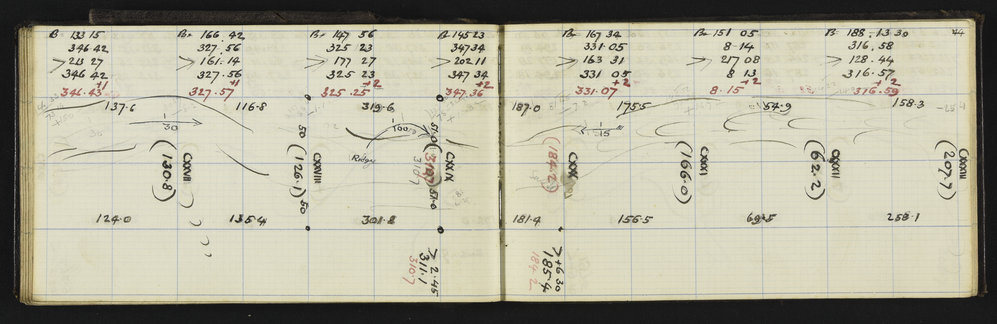 B- 133 15 B- 166. 42 B- 147 56 B- 145 23 B- 167 34 B- 151 05 B- 188. 13 30 44
346 42 327. 56 325 23 347 34 331. 05 8. 14 316. 58
> 213 27 > 161. 14 > 177 27 > 202 11 > 163 31 > 217 08 > 128. 44
346 42 327. 56 325 23 347 34 331 05 8 13 316. 57
+1 +1 +2 +2 +2 +2 +2
346. 43 327. 57 325. 25 347. 36 331. 07 8. 15 316. 59
137.6 116.8 319.6 187.0 175.5 54.9 158.3
30 100 15
50 51.0
Ridge
CXXVII CXXVIII CXXIX CXXX CXXXI CXXXII CXXXIII
(130.8) (126.1) (310.7) (184.2) (166.0) (62.2) (207.7)
3107
50 51.0
124.0 135.4 301.8 181.4 156.5 69.5 258.1
> 2.45 > +6 30
311.1 185.4
310.7 184.2